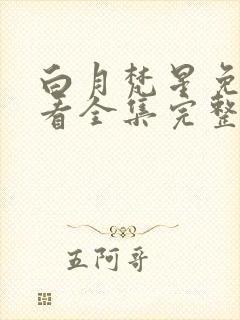 白月梵星免
看全集完整
五阿哥